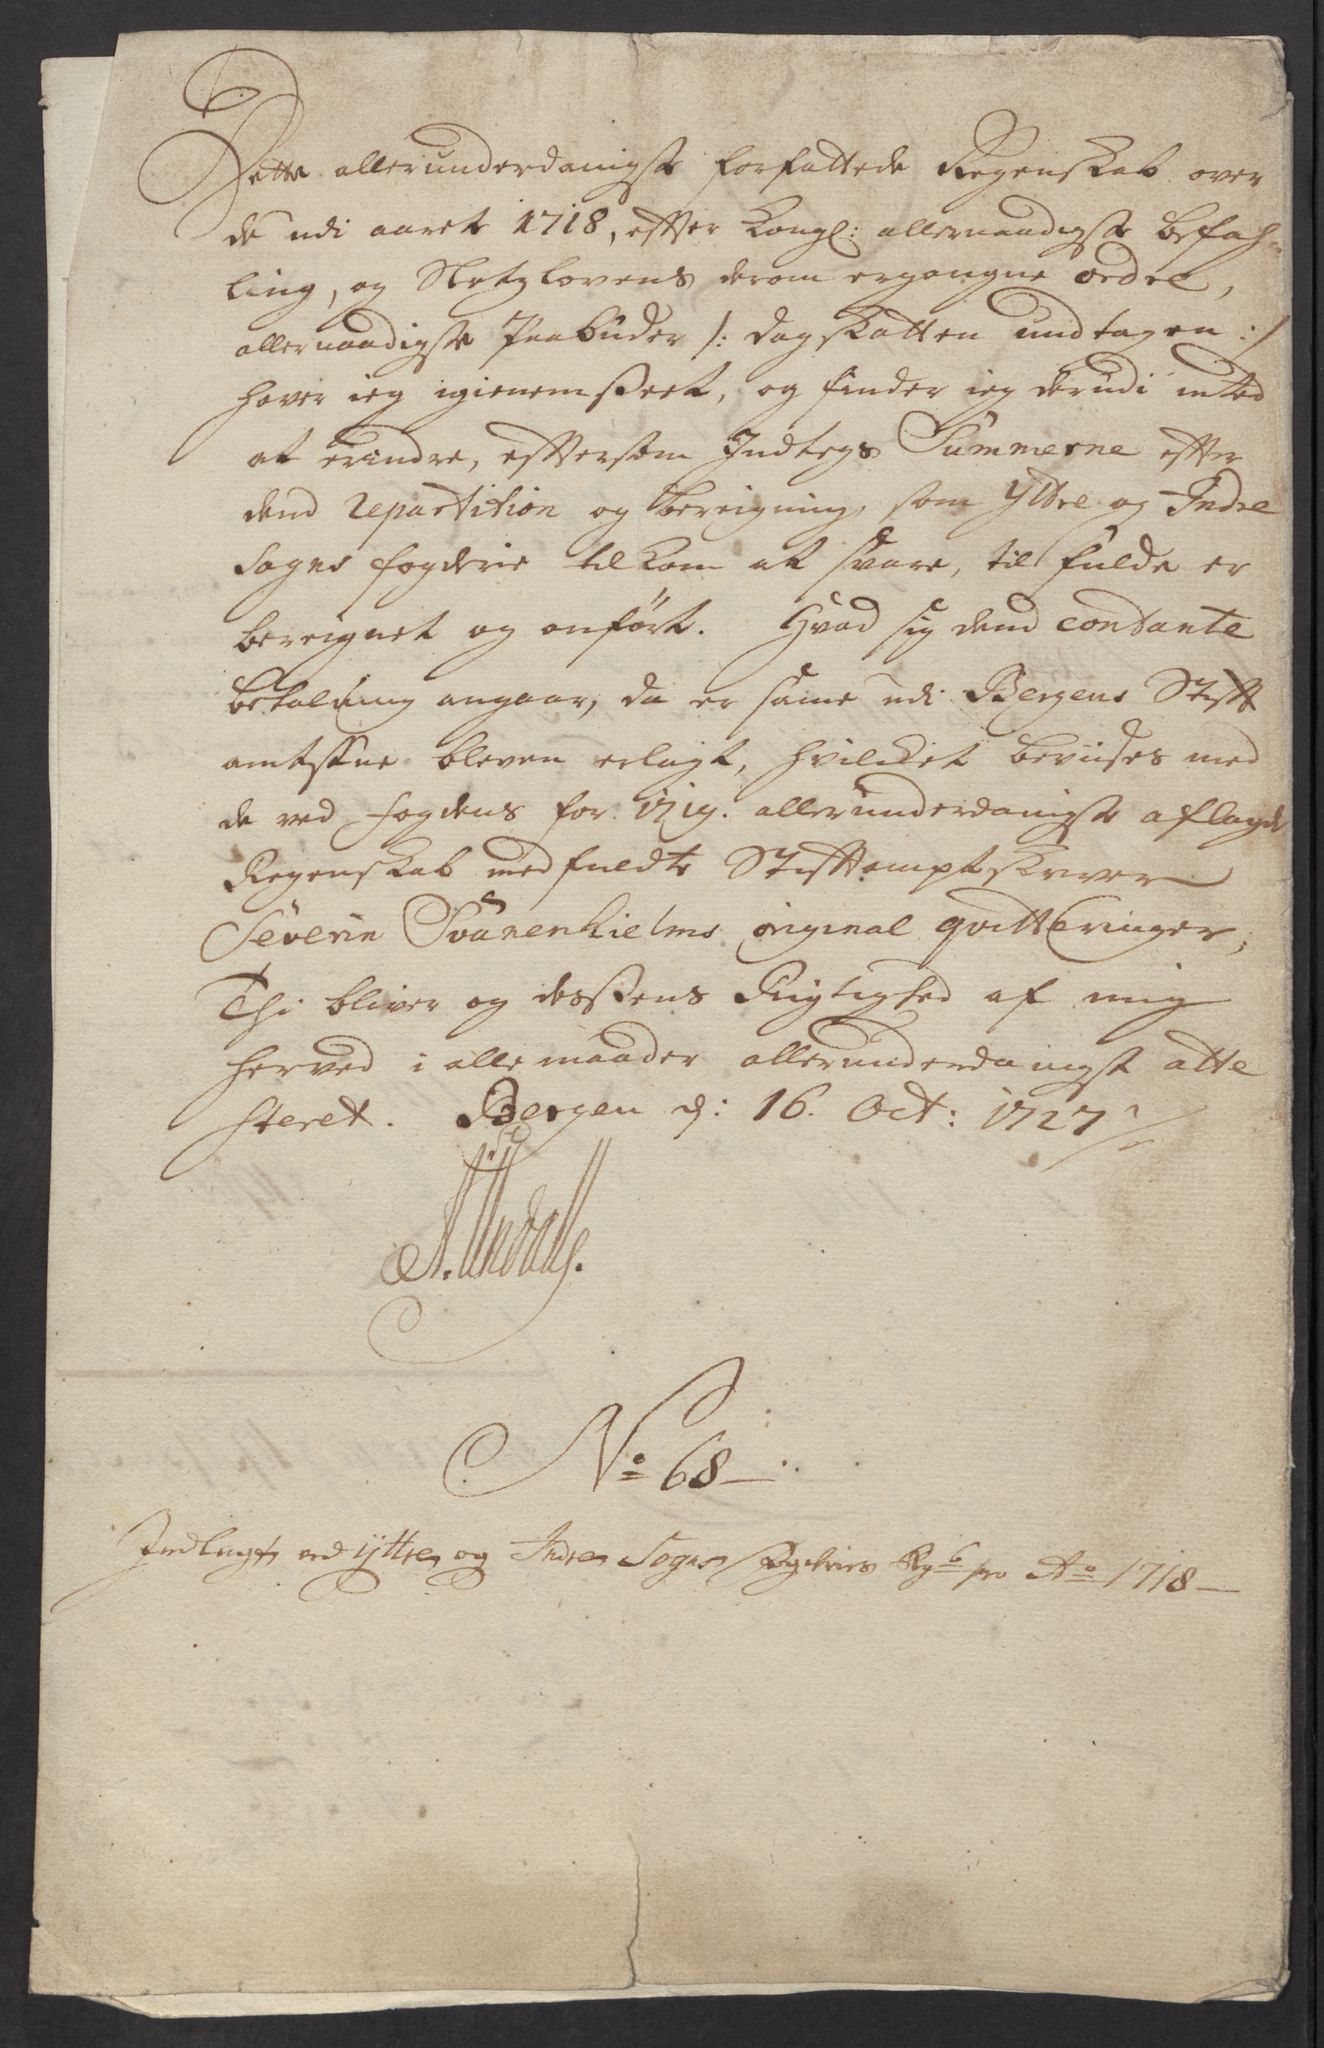 Dette allerunderdanigst forfattede Regenskab over
de udi aaret 1718, effter Kongl: allernaadigste befah-
ling, og Slotzlovens derom ergangne ordre,
allernaadigste Paabuder /: Dagskatten undtagen :/
haver ieg igienemseet, og finder ieg derudi inted
at erindre, effersom Indtegs Summerne effter
dend repartition og bereigning, som Ytre og Indre
Sogns fogderie tilkom at svare, til fulde er
bereignet og anfört. Hvad sig dend contante
betaling angaar, da er same udi Bergens Stifft
amtstue bleven erlagt, hvilcket beviises med
de ved fogdens for 1719. allerunderdanigst aflagde
Regenskab medfuldte Stifftamptskriver
Severin Svanenhielms original qvitteringer,
Thi bliver og dessens Rigtighed af mig
herved i alle maader allerunderdanigst atte
steret. Bergen d: 16. Oct: 1727
No 68
Indlagt ved Yttre og Indre Sogns Fogderies Rgb pro Ao 1718